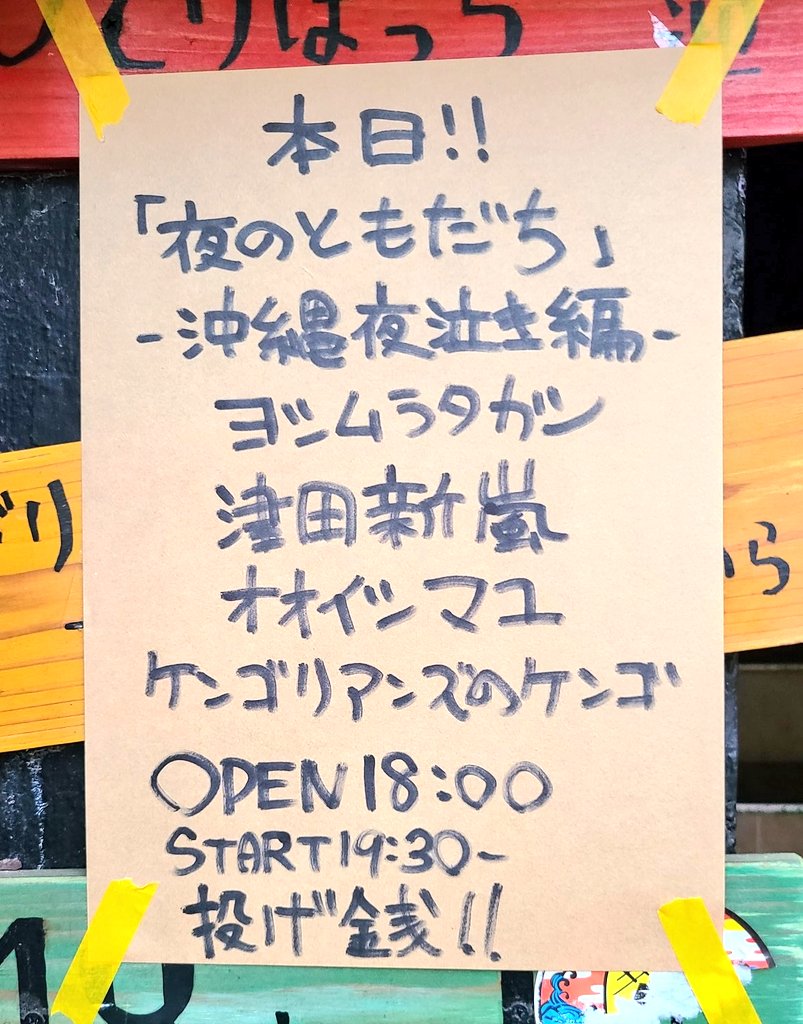 ひとりぼっち
本日!!
「夜のともだち」
-沖縄夜泣き編-
ヨシムラタガシ
津田新嵐
オオイシマユ
ケンゴリアンズのケンゴ
OPEN 18:00
START 19:30-
投げ銭!!